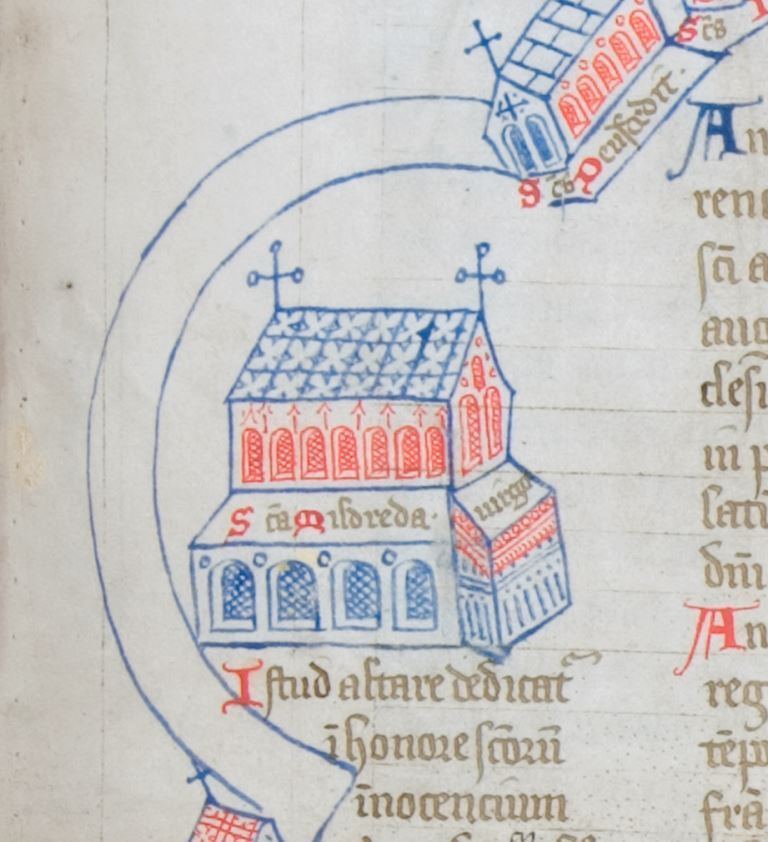 S cs
S cs Deusdedit.
S cta Mildreda.
uirgo
Istud altare dedicat͂
ī honore sco͂rū
īnocencium
An
reng
sc͂i a
aug
desi
in p
lati
dn͂i
An
reg
tēp
frā